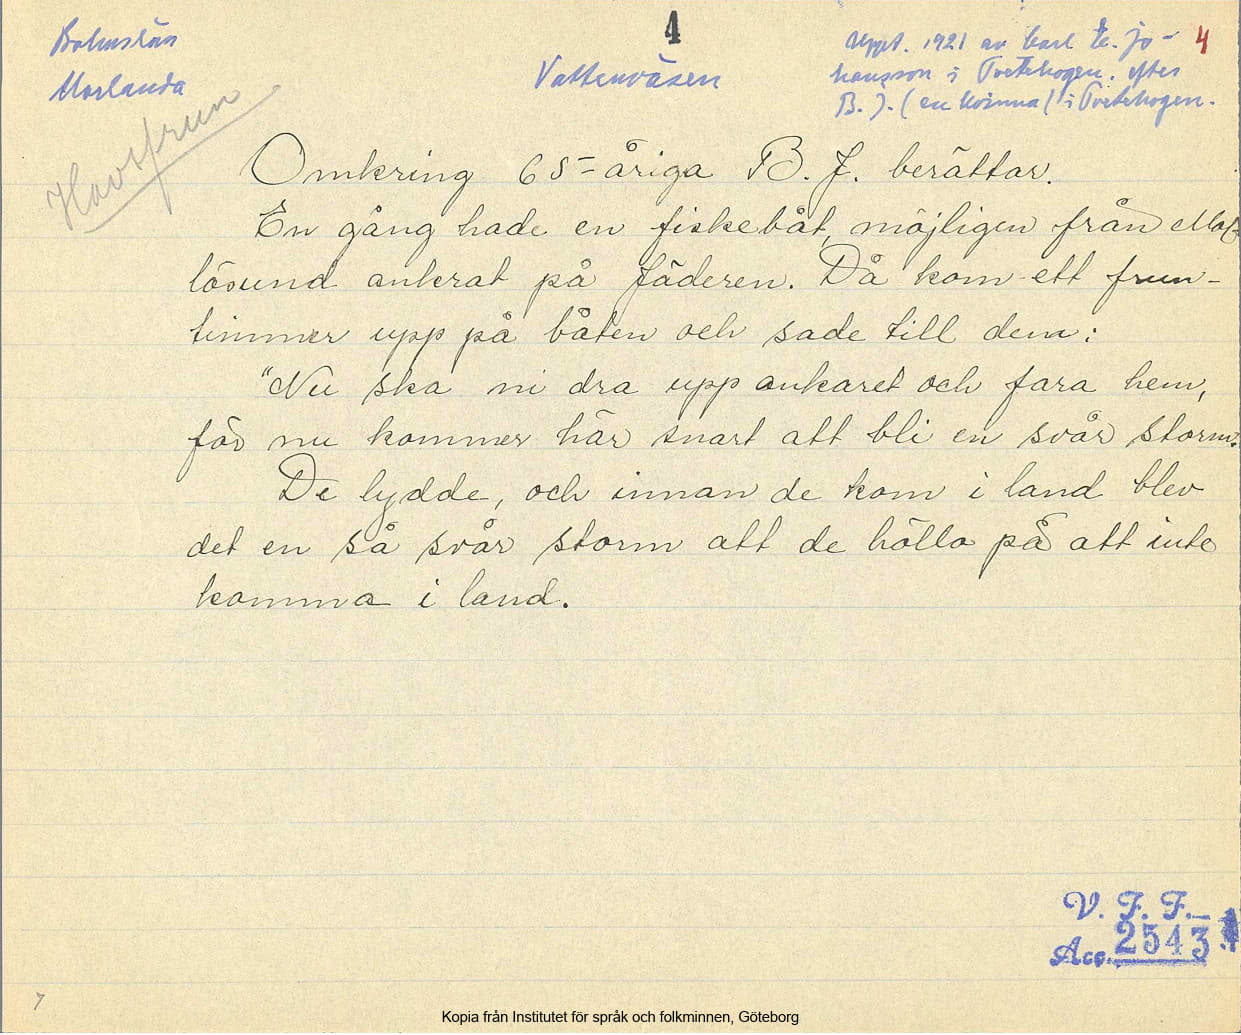 Bohuslän
Morlanda
4
Vattenväsen
Uppt. 1921 av Karl Jo-
hansson i Tvetehogen. efter
B. J. (en kvinna) i Tvetehogen.
4
Havsfrun
Omkring 65-åriga B. J. berättar.
En gång hade en fiskebåt, möjligen från Mol-
lösund ankrat på Jäderen. Då kom ett frun-
timmer upp på båten och sade till dem:
"Nu ska ni dra upp ankaret och fara hem,
för nu kommer här snart att bli en svår storm."
De lydde, och innan de kom i land blev
det en så svår storm att de höllo på att inte
komma i land.
V. F. F.
Acc. 2543
7
Kopia från Institutet för språk och folkminnen, Göteborg